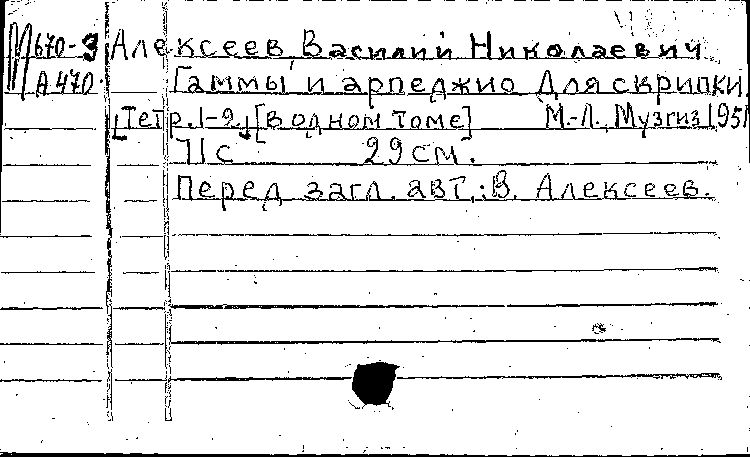 М670-3 Алексеев, Василий Николаевич
А470. Гаммы и арпеджио для скрипки.
[Тетр. 1-2.] [в одном томе] М.-Л., Музгиз 1951
71 с 29 см.
Перед загл. авт.: В. Алексеев.